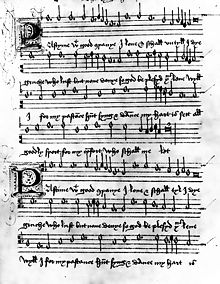 Pastyme wt good companye I love & schall vntyll I dye
gruche who lust but none denye so god be plesyd thus leve wyll
I for my pastance hunt synge & dance my hart is sett all
goodly sport for my comfort who schall me let
Pastyme wt good companye I love & schall vntyll I dye
gruche who lust but none denye so god be plesyd thus leve
wyll I for my pastance hunt synge & dance my hart is